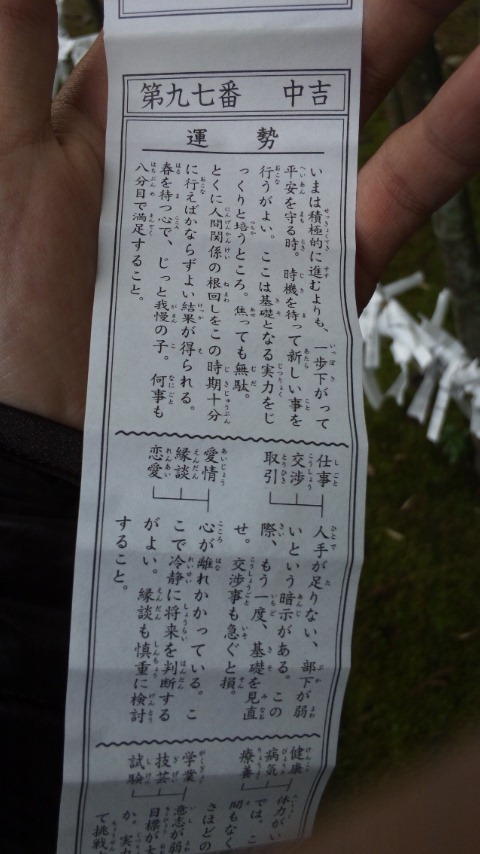 第九七番　中吉
運勢
いまは積極的に進むよりも、一歩下がって
平安を守る時。時機を待って新しい事を
行うがよい。ここは基礎となる実力をじ
っくりと培うところ。焦っても無駄。
とくに人間関係の根回しをこの時期十分
に行えばかならずよい結果が得られる。
春を待つ心で、じっと我慢の子。何事も
八分目で満足すること。
仕事
交渉
取引
人手が足りない、部下が弱
いという暗示がある。この
際、もう一度、基礎を見直
せ。交渉事も急ぐと損。
愛情
縁談
恋愛
心が離れかかっている。こ
こで冷静に将来を判断する
がよい。縁談も慎重に検討
すること。
健康
病気
療養
体力がい
では、こ
間もなく
さほどの
学業
技芸
試験
意志が弱
目標が大
か。実力
て挑戦